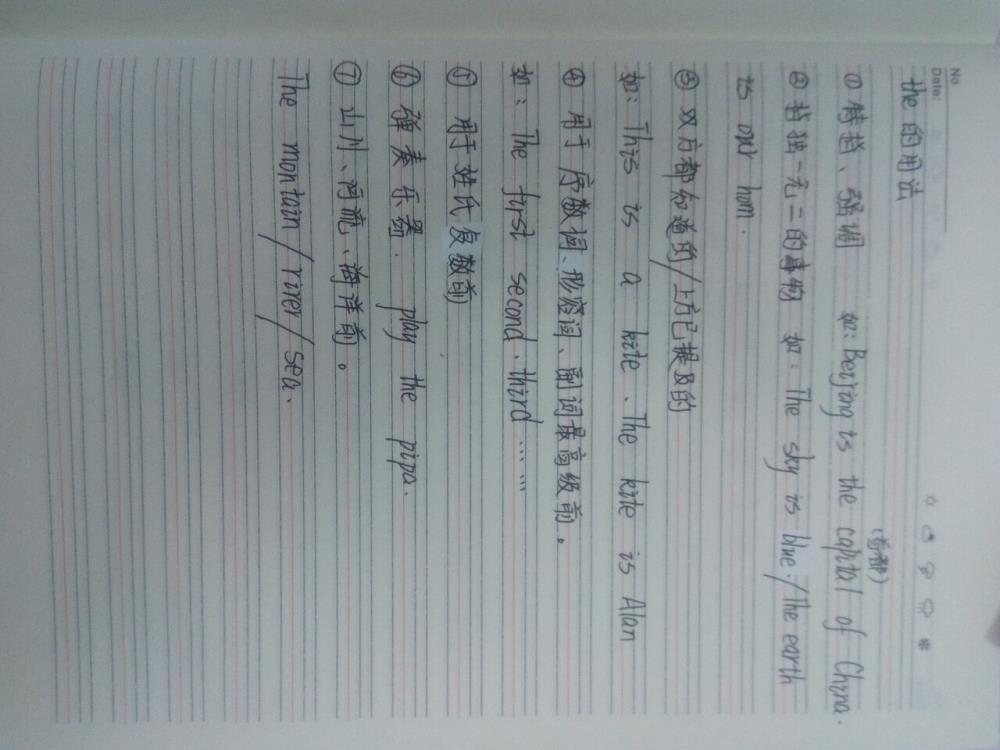 No
Date:
the 的用法
(首都)
①特指、强调 如: Beijing is the capital of China.
②指独一无二的事物 如: The sky is blue./The earth
is our hom.
③双方都知道的/上方已提及的
如: This is a kite. The kite is Alan
④用于序数词、形容词、副词最高级前。
如: The first second. third ……
⑤用于姓氏复数前
⑥弹奏乐器. play the pipa.
⑦山川、河流、海洋前。
The montain/river/sea.